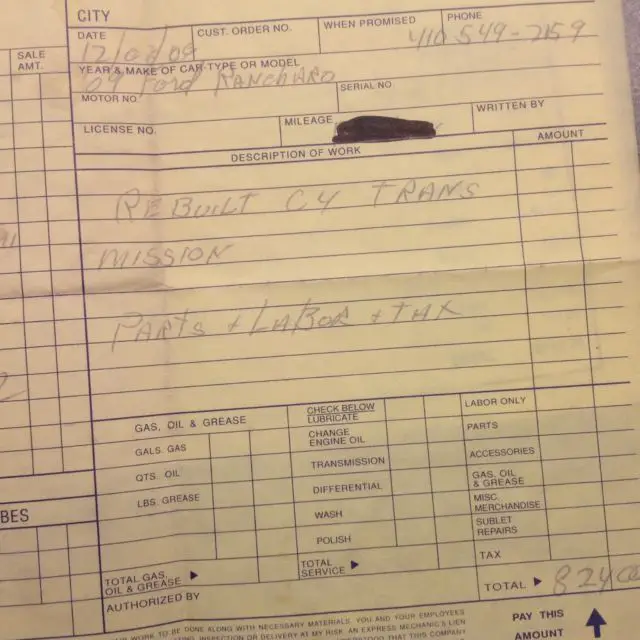 CITY
DATE 12/02/09 CUST. ORDER NO. WHEN PROMISED PHONE 410 549-7159
SALE AMT.
YEAR & MAKE OF CAR-TYPE OR MODEL
09 Ford RANCHARO
MOTOR NO. SERIAL NO
LICENSE NO. MILEAGE WRITTEN BY
DESCRIPTION OF WORK AMOUNT
REBUILT C4 TRANS
MISSION
PARTS + LABOR + TAX
GAS, OIL & GREASE CHECK BELOW LABOR ONLY
LUBRICATE
GALS. GAS CHANGE ENGINE OIL PARTS
QTS. OIL TRANSMISSION ACCESSORIES
LBS. GREASE DIFFERENTIAL GAS, OIL & GREASE
BES WASH MISC. MERCHANDISE
POLISH SUBLET REPAIRS
TOTAL GAS, OIL & GREASE TOTAL SERVICE TAX
AUTHORIZED BY TOTAL 824 00
WORK TO BE DONE ALONG WITH NECESSARY MATERIALS. YOU AND YOUR EMPLOYEES
AT MY RISK. AN EXPRESS MECHANIC'S LIEN
THAT THIS COMPANY
PAY THIS
AMOUNT